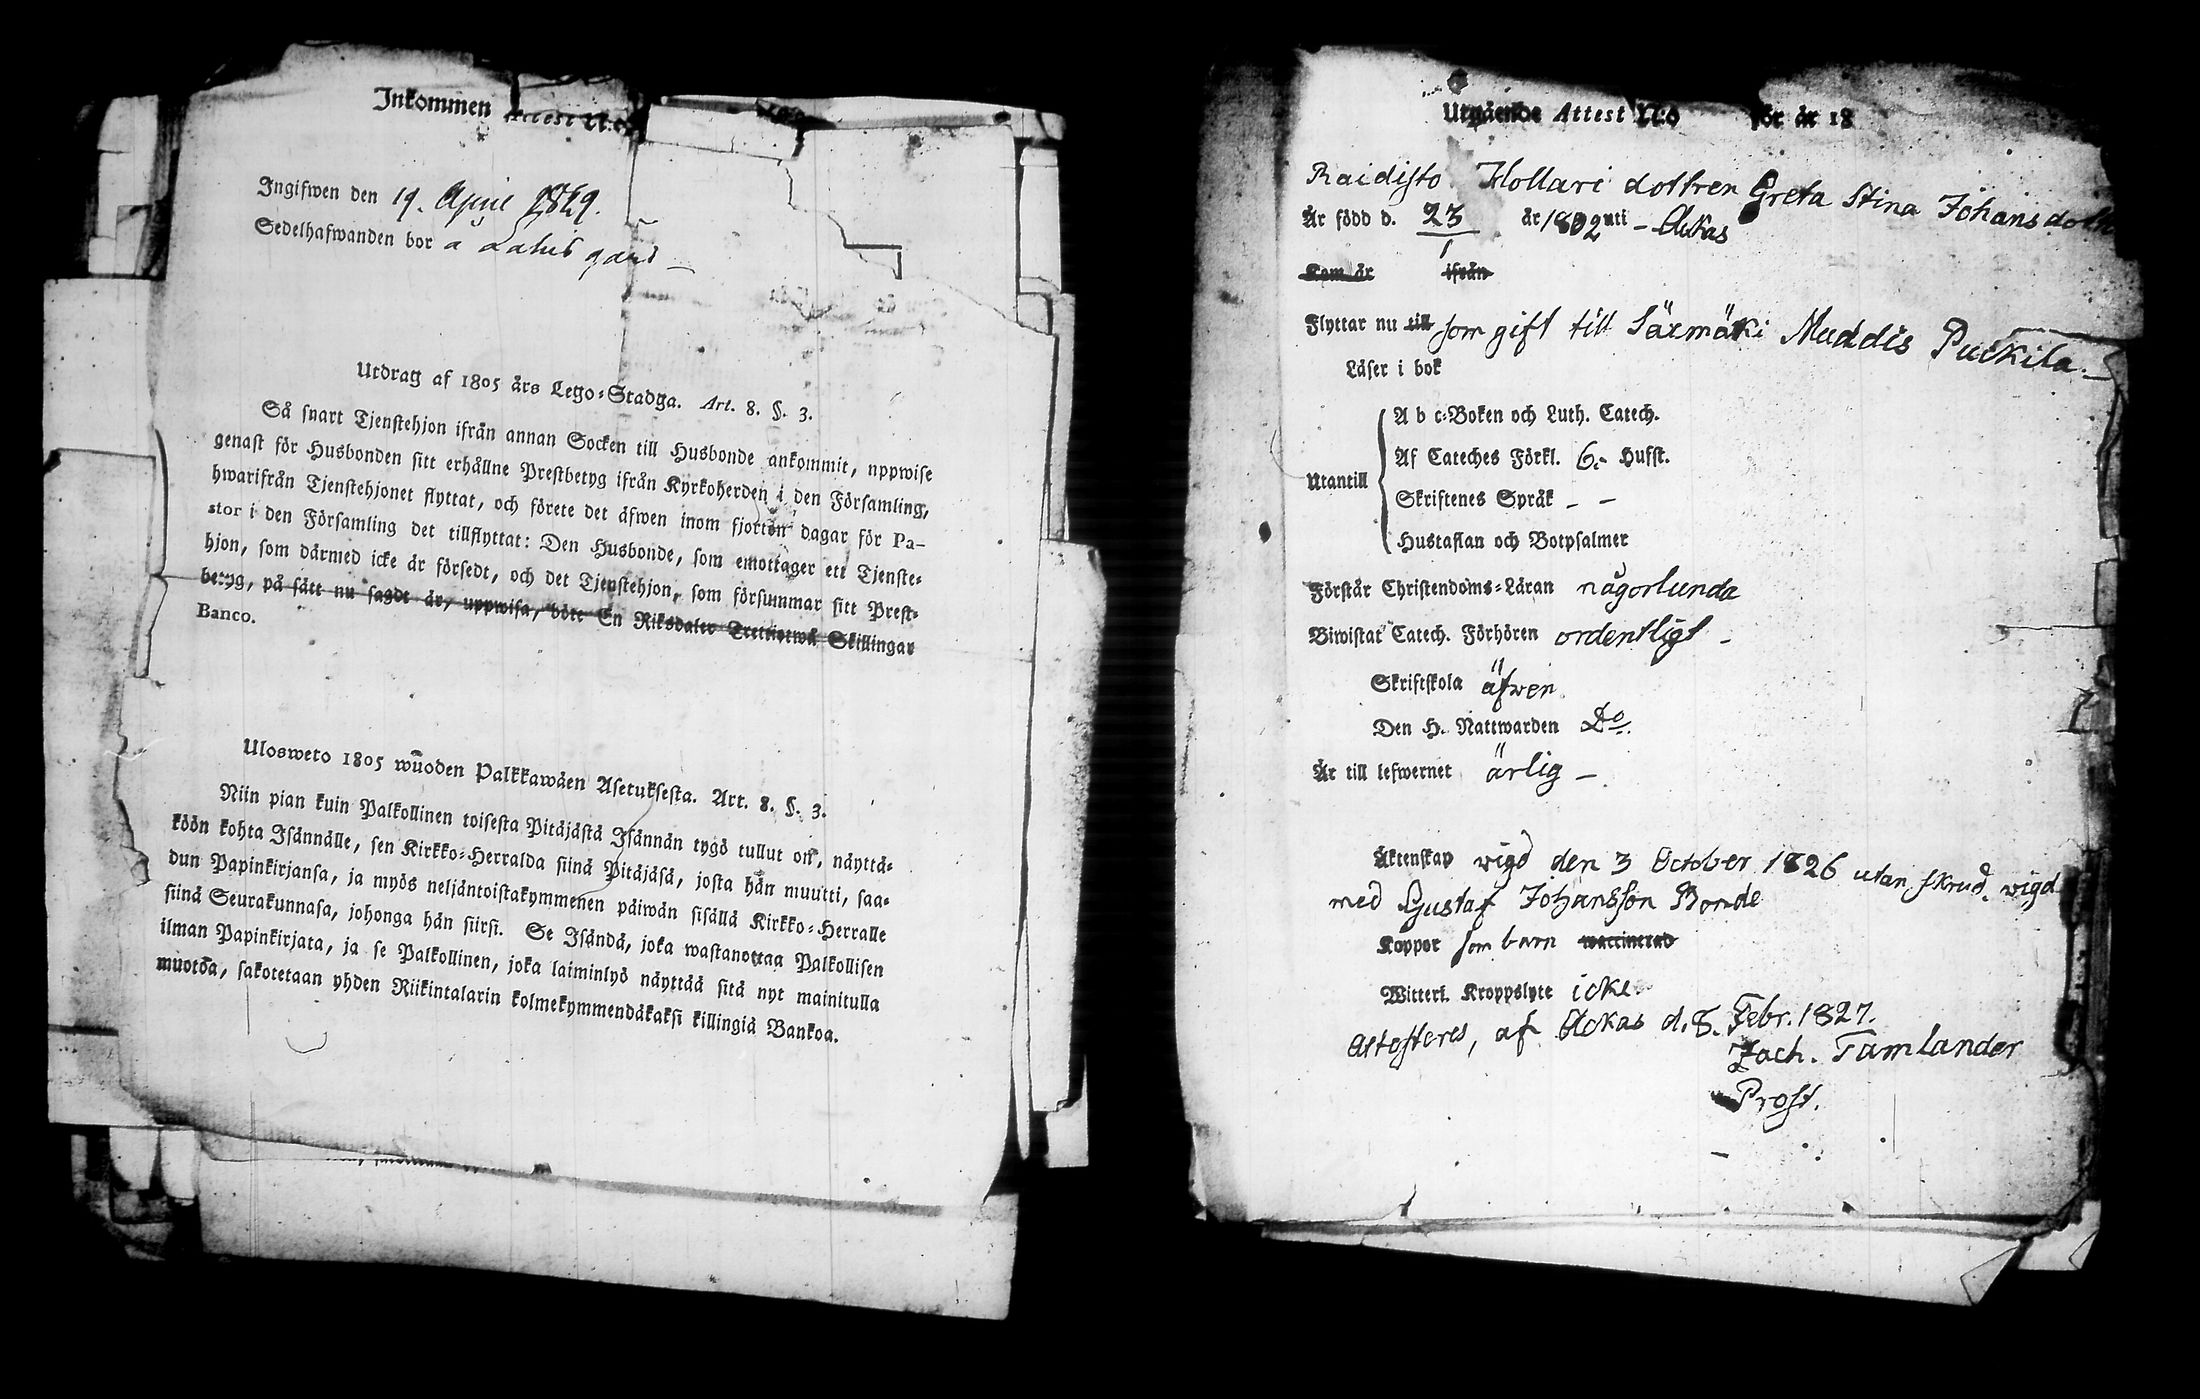 Inkommen Attest N:o
Ingifwen den 19. April 1829.
Sedelhafwanden bor å Lahis gård –
Utdrag af 1805 års Lego-Stadga. Art. 8. §. 3.
Så snart Tjenstehjon ifrån annan Socken till Husbonde ankommit, uppwise
genast för Husbonden sitt erhållne Prestbetyg ifrån Kyrkoherden i den Församling,
hwarifrån Tjenstehjonet flyttat, och förete det äfwen inom fjorton dagar för Pa-
stor i den Församling det tillflyttat: Den Husbonde, som emottager ett Tjenste-
hjon, som därmed icke är försedt, och det Tjenstehjon, som försummar sitt Prest-
betyg, på sätt nu sagdt är, uppwisa, böte En Riksdaler Trettiotwå Skillingar
Banco.
Ulosweto 1805 wuoden Palkkawäen Asetuksesta. Art. 8. §. 3.
Niin pian kuin Palkollinen toisesta Pitäjästä Isännän tygö tullut on, näyttä-
köön kohta Isännälle, sen Kirkko-Herralda siinä Pitäjäsä, josta hän muutti, saa-
dun Papinkirjansa, ja myös neljäntoistakymmenen päiwän sisällä Kirkko-Herralle
siinä Seurakunnasa, johonga hän siirsi. Se Isändä, joka wastanottaa Palkollisen
ilman Papinkirjata, ja se Palkollinen, joka laiminlyö näyttää sitä nyt mainitulla
muotoa, sakotetaan yhden Riikintalarin kolmekymmendäkaksi killingiä Bankoa.
Utgående Attest N:o för år 18
Raidisto Hollari dottren Greta Stina Johansdott
Är född d. 23/1 år 1802 uti – Ackas
Kom år ifrån
Flyttar nu till som gift till Särmäki Maddis Puckila. –
Läser i bok
A b c-Boken och Luth. Catech.
Af Cateches Förkl. 6.- Hufst.
Utantill
Skriftenes Språk – –
Hustaflan och Botpsalmer
Förstår Christendoms-Läran någorlunda
Biwistat Catech. Förhören ordentligt –
Skriftskola äfwen
Den H. Nattwarden Do.
Är till lefwernet ärlig –
Äktenskap wigd den 3 October 1826 utan skrud. wigd
med Gustaf Johansson Bonde
Koppor som barn waccinerad
Witterl. Kroppslyte icke.
Attesteres, af Ackas d. 8. Febr. 1827.
Zach. Tamlander
Prost.